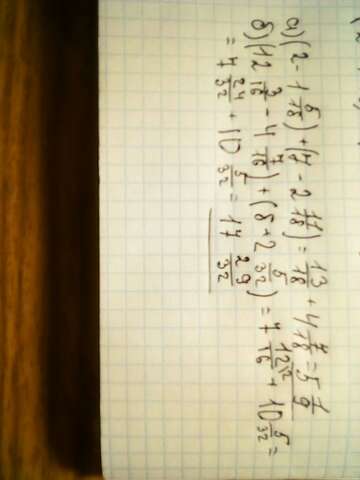 а) (2 - 1 5/18) + (7 - 2 11/18) = 13/18 + 4 7/18 = 5 1/9
б) (12 3/16 - 4 7/16) + (8 + 2 5/32) = 7 12\2/16 + 10 5/32 =
= 7 24/32 + 10 5/32 = 17 29/32